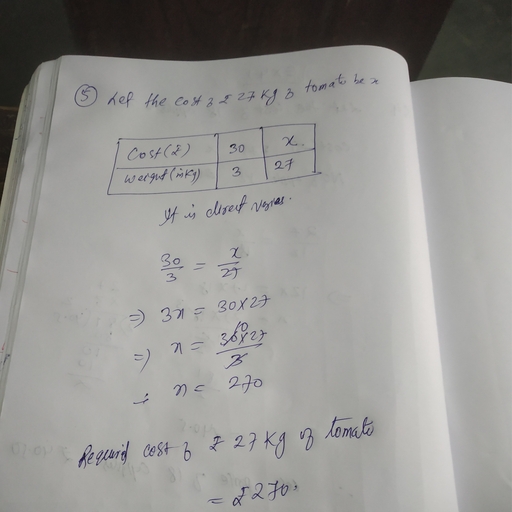 ⑤ Let the cost of ₹ 27 Kg of tomato be x
Cost (₹) 30 x
Weight (in Kg) 3 27
It is direct varies.
30/3 = x/27
⇒ 3x = 30×27
⇒ x = 30×27/3 10
∴ x = 270
Required cost of ₹ 27 Kg of tomato
= ₹ 270.